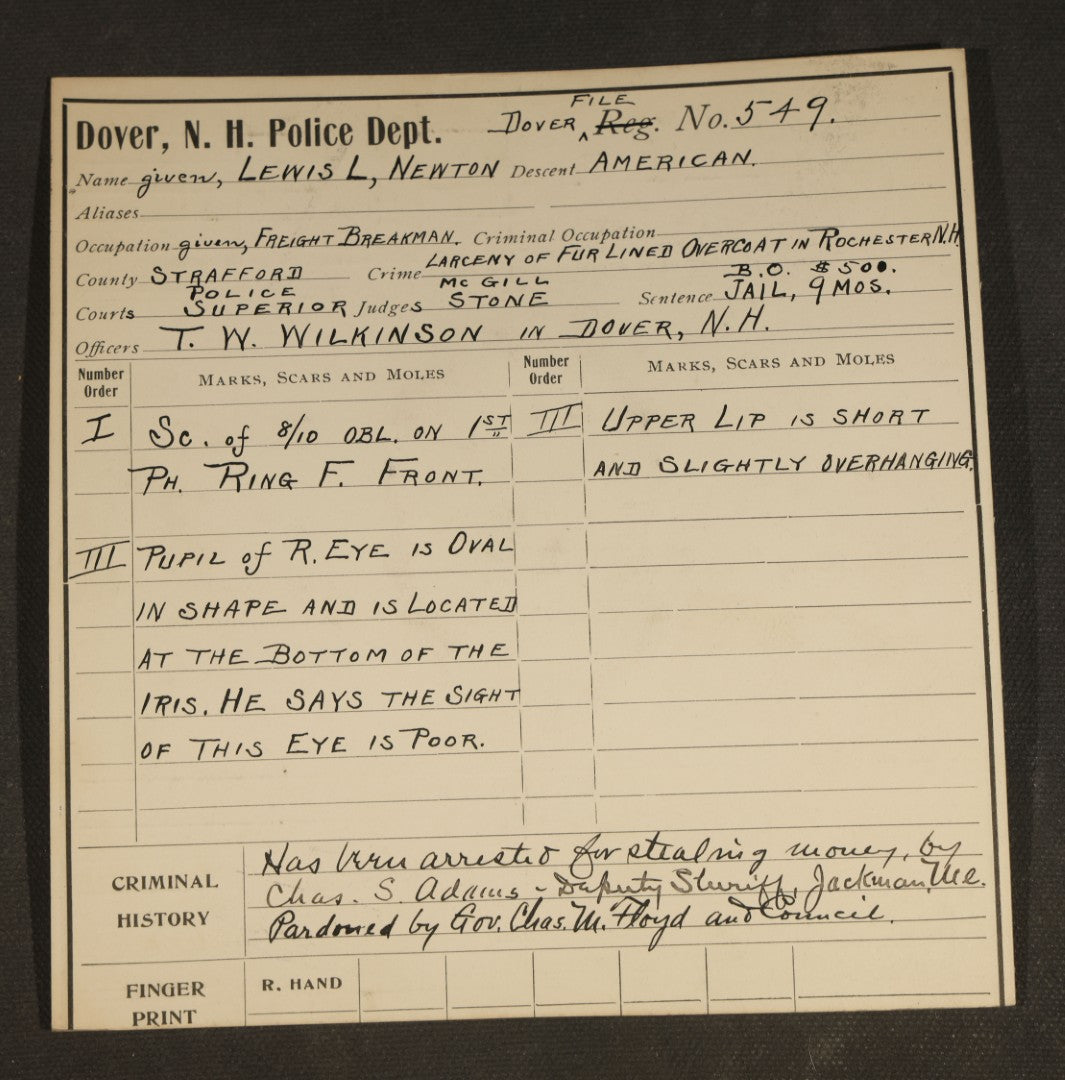 FILE
Dover, N. H. Police Dept. DOVER ^ Reg. No. 549.
Name given, LEWIS L, NEWTON Descent AMERICAN.
Aliases
Occupation given, FREIGHT BREAKMAN. Criminal Occupation
LARCENY OF FUR LINED OVERCOAT IN ROCHESTER N.H.
County STRAFFORD Crime
POLICE MCGILL B.O. $500.
Courts SUPERIOR Judges STONE Sentence JAIL, 9 MOS.
Officers T. W. WILKINSON IN DOVER, N.H.
Number Order MARKS, SCARS AND MOLES Number Order MARKS, SCARS AND MOLES
I Sc. of 8/10 OBL. ON 1ST " III UPPER LIP IS SHORT
PH. RING F. FRONT. AND SLIGHTLY OVERHANGING.
III PUPIL of R. EYE IS OVAL
IN SHAPE AND IS LOCATED
AT THE BOTTOM OF THE
IRIS. HE SAYS THE SIGHT
OF THIS EYE IS POOR.
CRIMINAL HISTORY
Has been arrested for stealing money, by
Chas. S. Adams - Deputy Sheriff, Jackman, Me.
Pardoned by Gov. Chas. M. Floyd and Council.
FINGER PRINT R. HAND